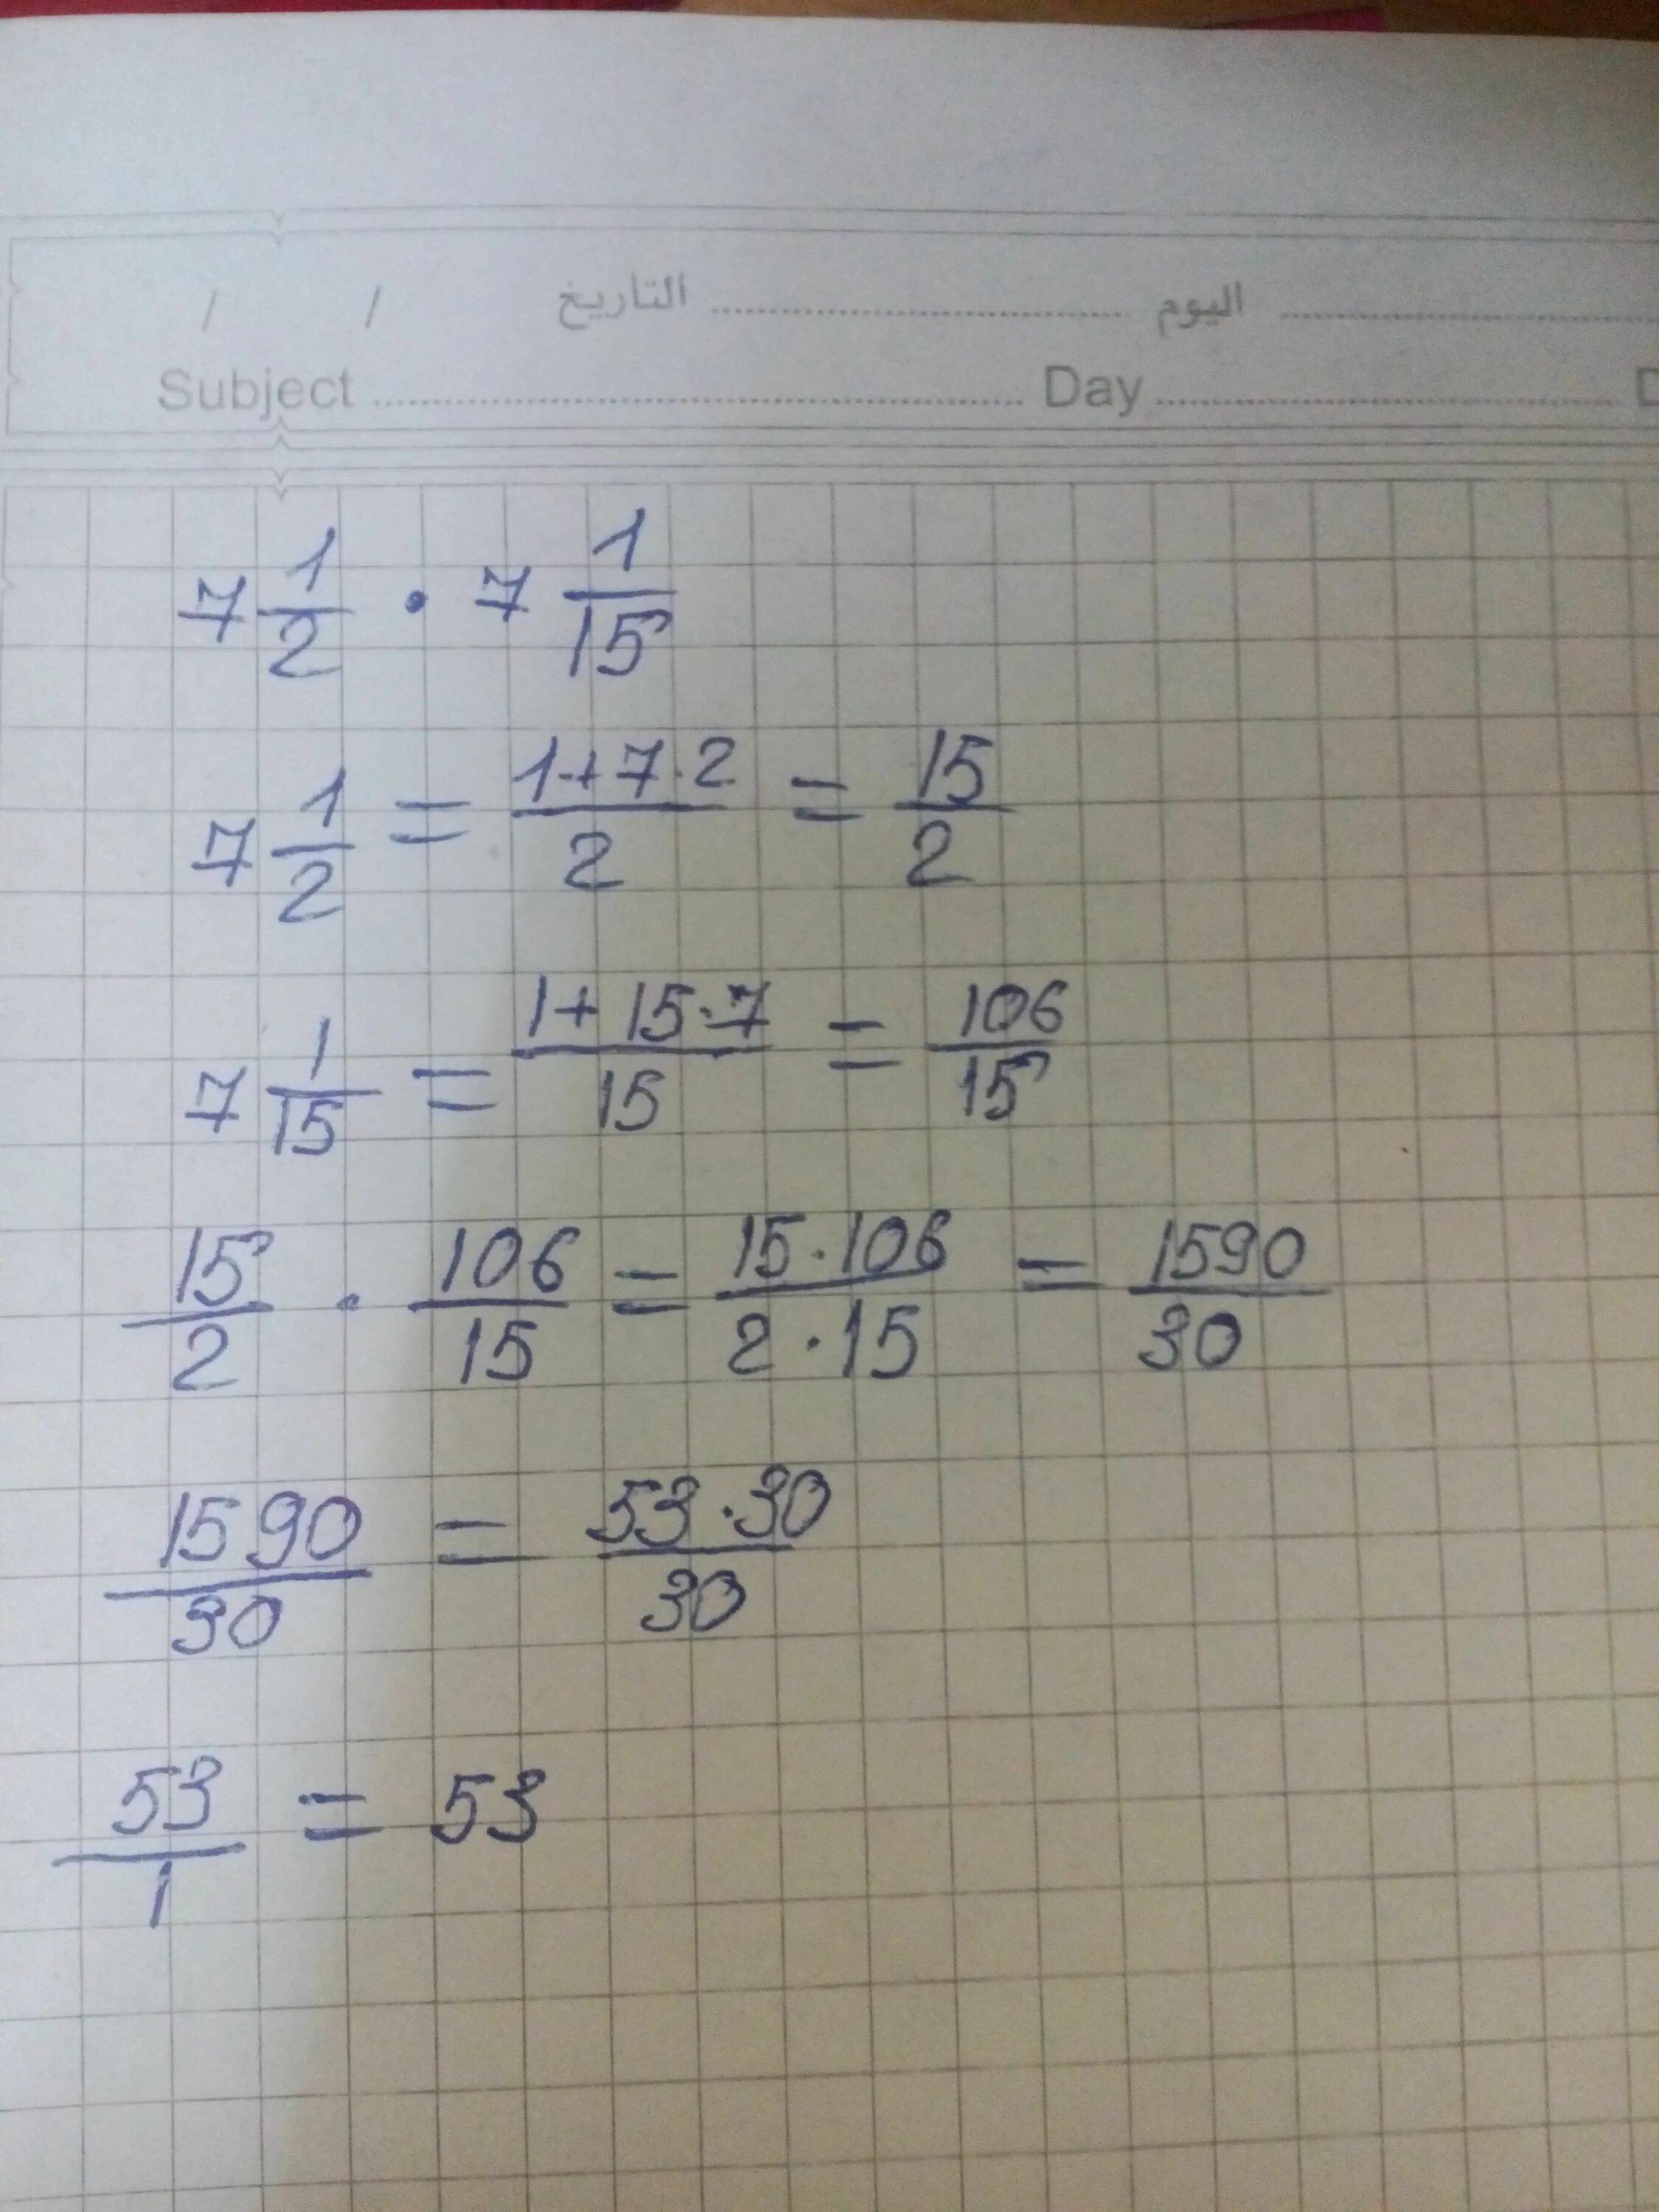 / / التاريخ .................... اليوم ....................
Subject .................... Day .................... D
7 1/2 · 7 1/15
7 1/2 = (1+7·2)/2 = 15/2
7 1/15 = (1+15·7)/15 = 106/15
15/2 · 106/15 = (15·106)/(2·15) = 1590/30
1590/30 = (53·30)/30
53/1 = 53